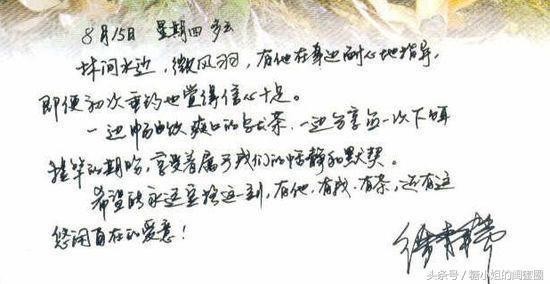 8月15日 星期四 多云
林间水边,微风,有他在身边耐心地指导,
即便初次垂钓也觉得信心十足。
一边畅饮爽口的乌龙茶,一边分享每一次下饵
竿的期盼,享受着属于我们的恬静和默契。
希望能永远定格这一刻,有他、有我、有茶,还有这
悠闲自在的爱意!
头条号 / 糖小姐的闺蜜圈